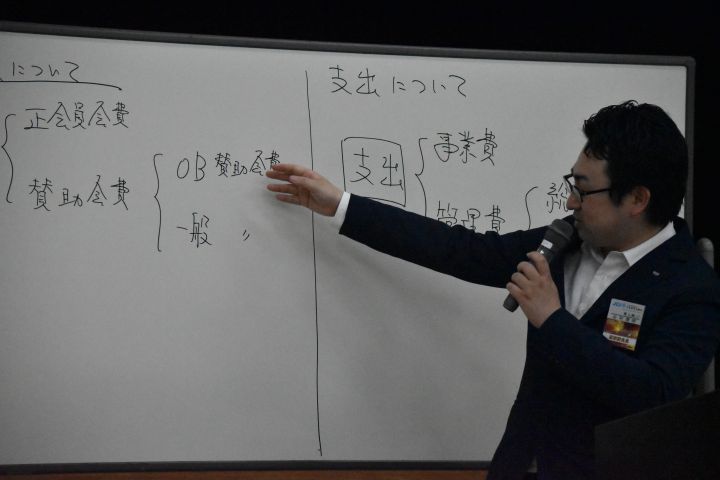 について
正会員会費
賛助会費
OB 賛助会費
一般 〃
支出について
支出
事業費
管理費
総